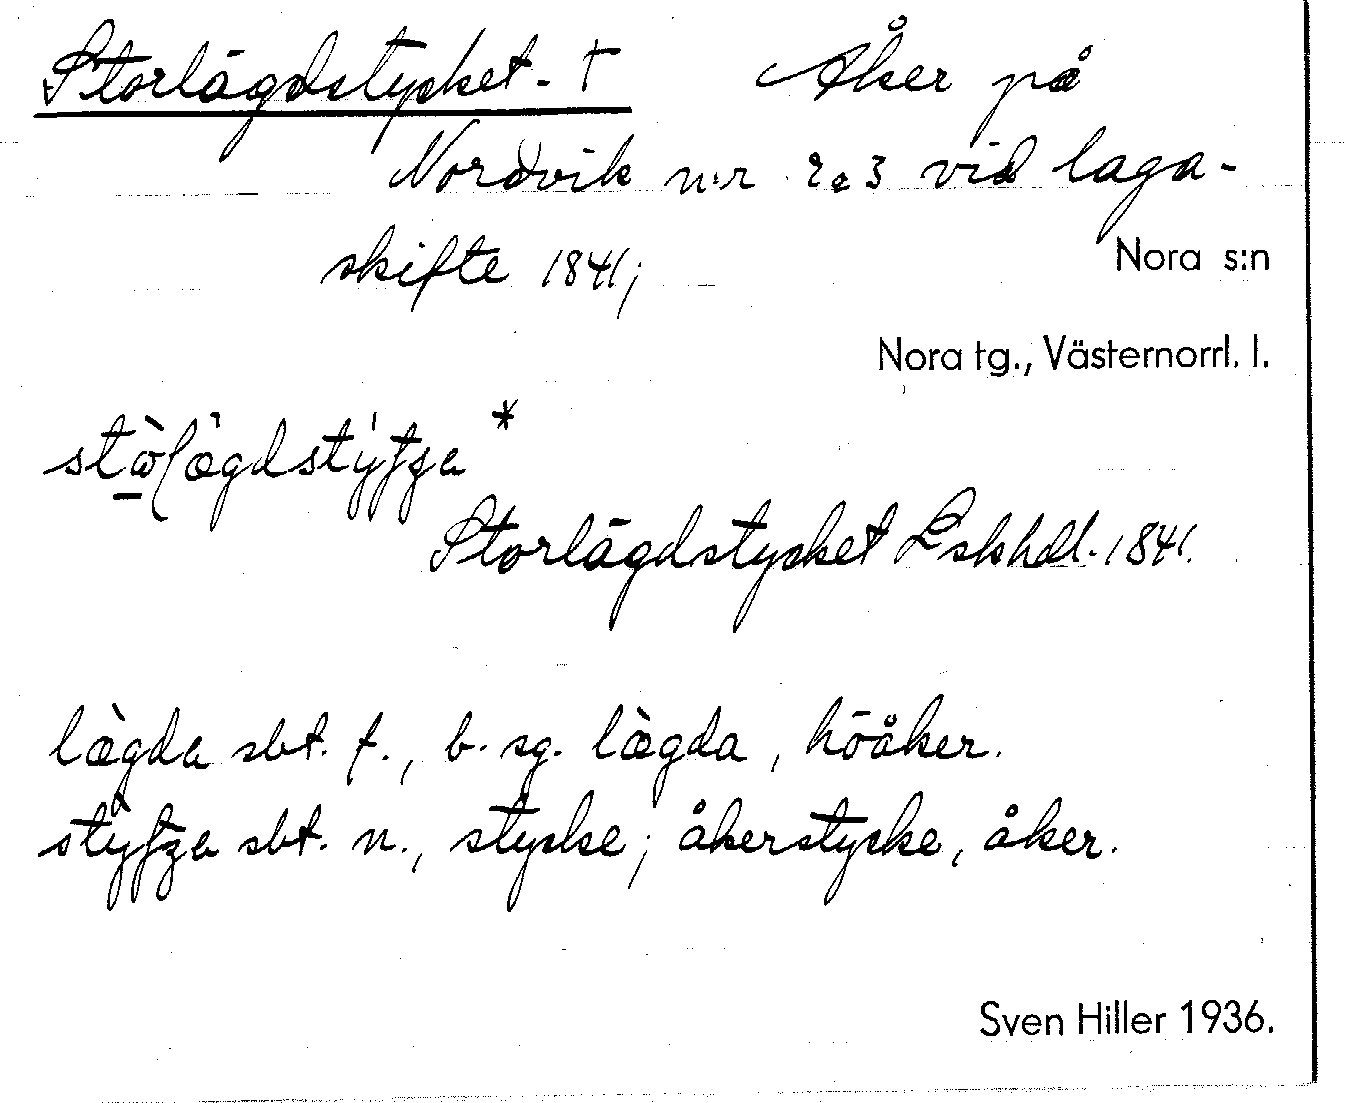 Storlägdstycket. † Åker på
Nordvik n:r 2 o 3 vid laga-
skifte 1841;
Nora s:n
Nora tg., Västernorrl. l.
Storlägdstycket Lskhdl. 1841.
lægda sbt. f., b. sg. lægda, höåker.
sbt. n., stycke; åkerstycke, åker.
Sven Hiller 1936.